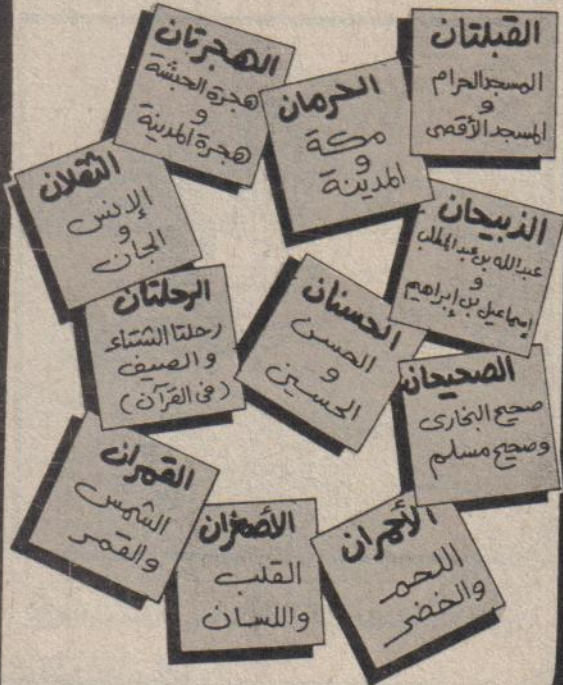 القبلتان
المسجد الحرام
و
المسجد الأقصى
الهجرتان
هجرة الحبشة
و
هجرة المدينة
الحرمان
مكة
و
المدينة
الثقلان
الإنس
و
الجان
الذبيحان
عبدالله بن عبدالمطلب
و
إسماعيل بن إبراهيم
الرحلتان
رحلتا الشتاء
والصيف
(فى القرآن)
الحسنان
الحسن
و
الحسين
الصحيحان
صحيح البخارى
وصحيح مسلم
القمران
الشمس
والقمر
الأصغران
القلب
واللسان
الأحمران
اللحم
والخضر